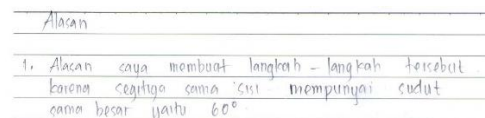 Alasan
1. Alasan saya membuat langkah - langkah tersebut
karena segitiga sama sisi mempunyai sudut
sama besar yaitu 60°